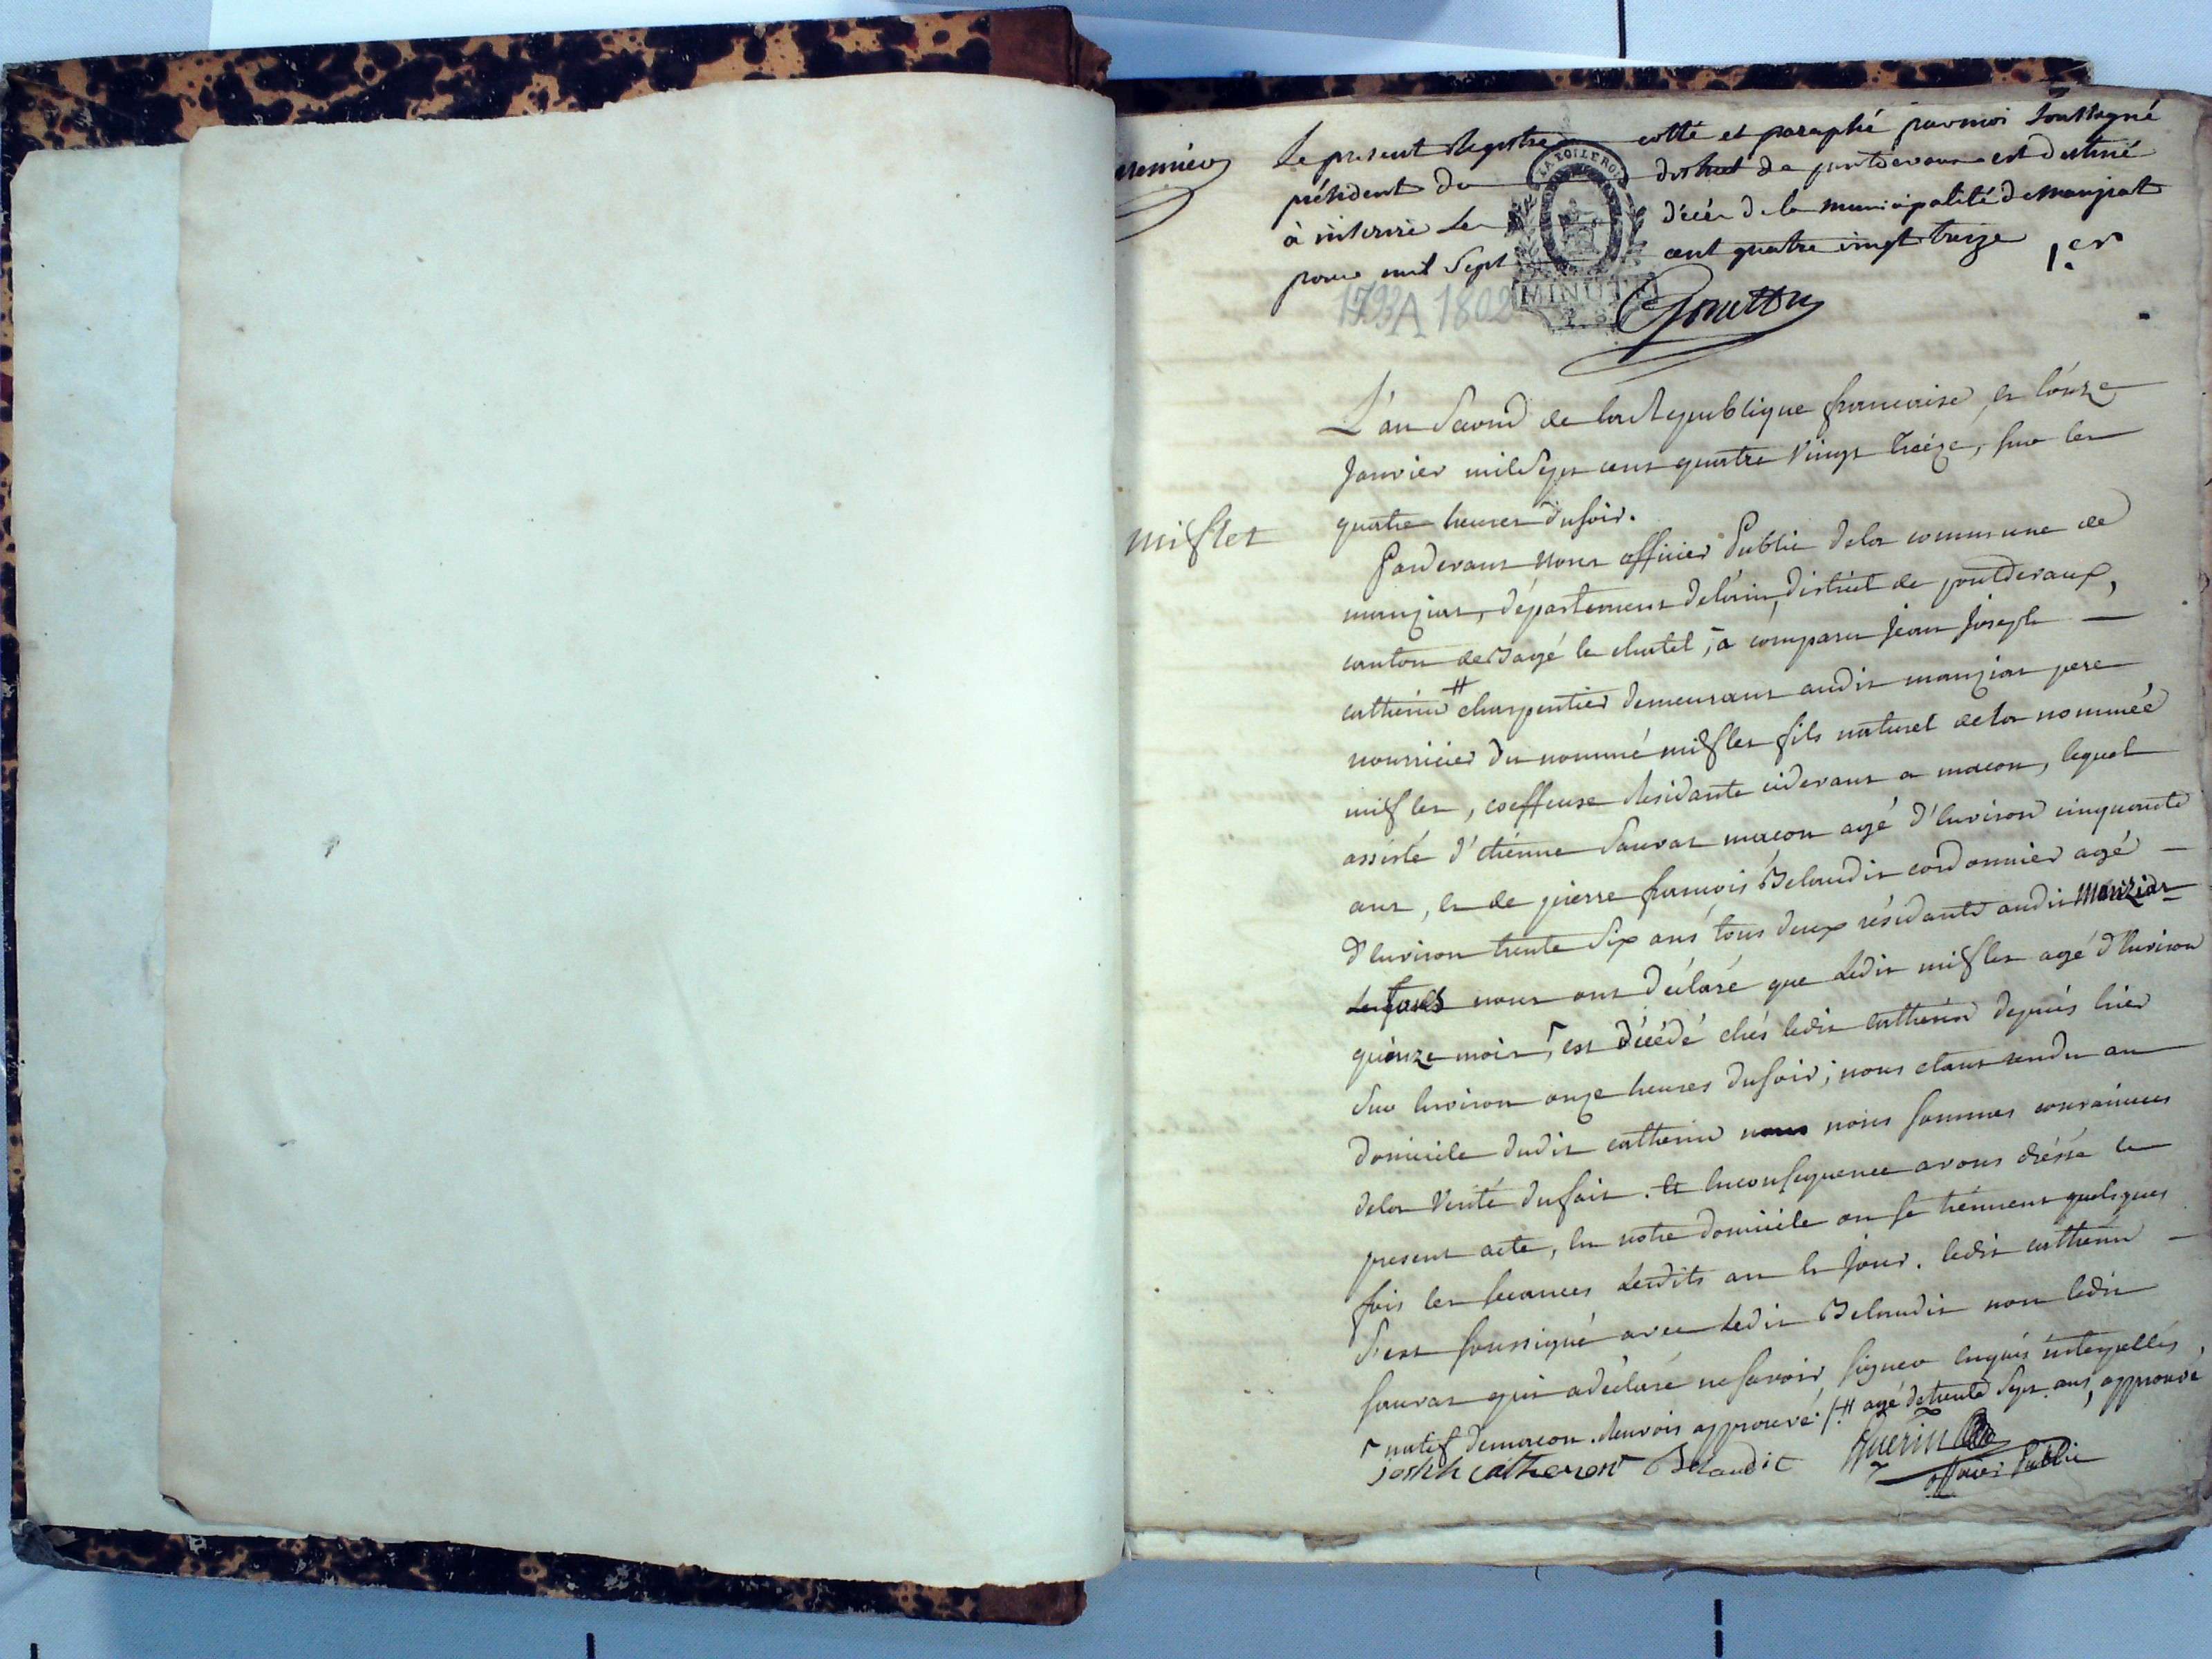 premier
Le present Registre cotté et paraphé par moi soussigné
président du district de pontdevaux est destiné
à inscrire les décès de la municipalité de manziat
pour mil sept cent quatre vingt treize 1.er
LA LOI LE ROI
MINUTE
1793 A 1802
L'an second de la Republique francaise, le onze
Janvier mil sept cent quatre vingt treize, sur les
quatre heures du soir.
misslet
Pardevant nous officier Public de la commune de
manziat, département de lain, district de pontdevaux,
canton de Bagé le chatel, a comparu Jean Joseph
catherin # charpentier demeurant audit manziat pere
nourricier du nommé misslet fils naturel de la nommée
misslet, coeffeuse residante cidevant a macon, lequel
assisté d'etienne sauvat macon agé d'environ cinquante
ans, et de pierre francois Belaudit cordonnier agé
d'environ trente six ans tous deux résidants audit manziat
lesquels nous ont déclaré que ledit misslet agé d'environ
quinze mois, est décédé chés ledit catherin depuis hier
sur environ onze heures du soir; nous etant rendu au
domicile dudit catherin nous nous sommes convaincus
de la verité du fait. et en consequence avons dréssé le
present acte, en notre domicile ou se tiennent quelques
fois les seances lesdits an et jour. ledit catherin
s'est soussigné avec ledit Belaudit non ledit
sauvat qui a déclaré ne savoir signer enquis interpellés,
natif de macon. renvois approuvé. /# agé de trente sept ans, approuvé
joseph catheron Belaudit Guerin
officier Public